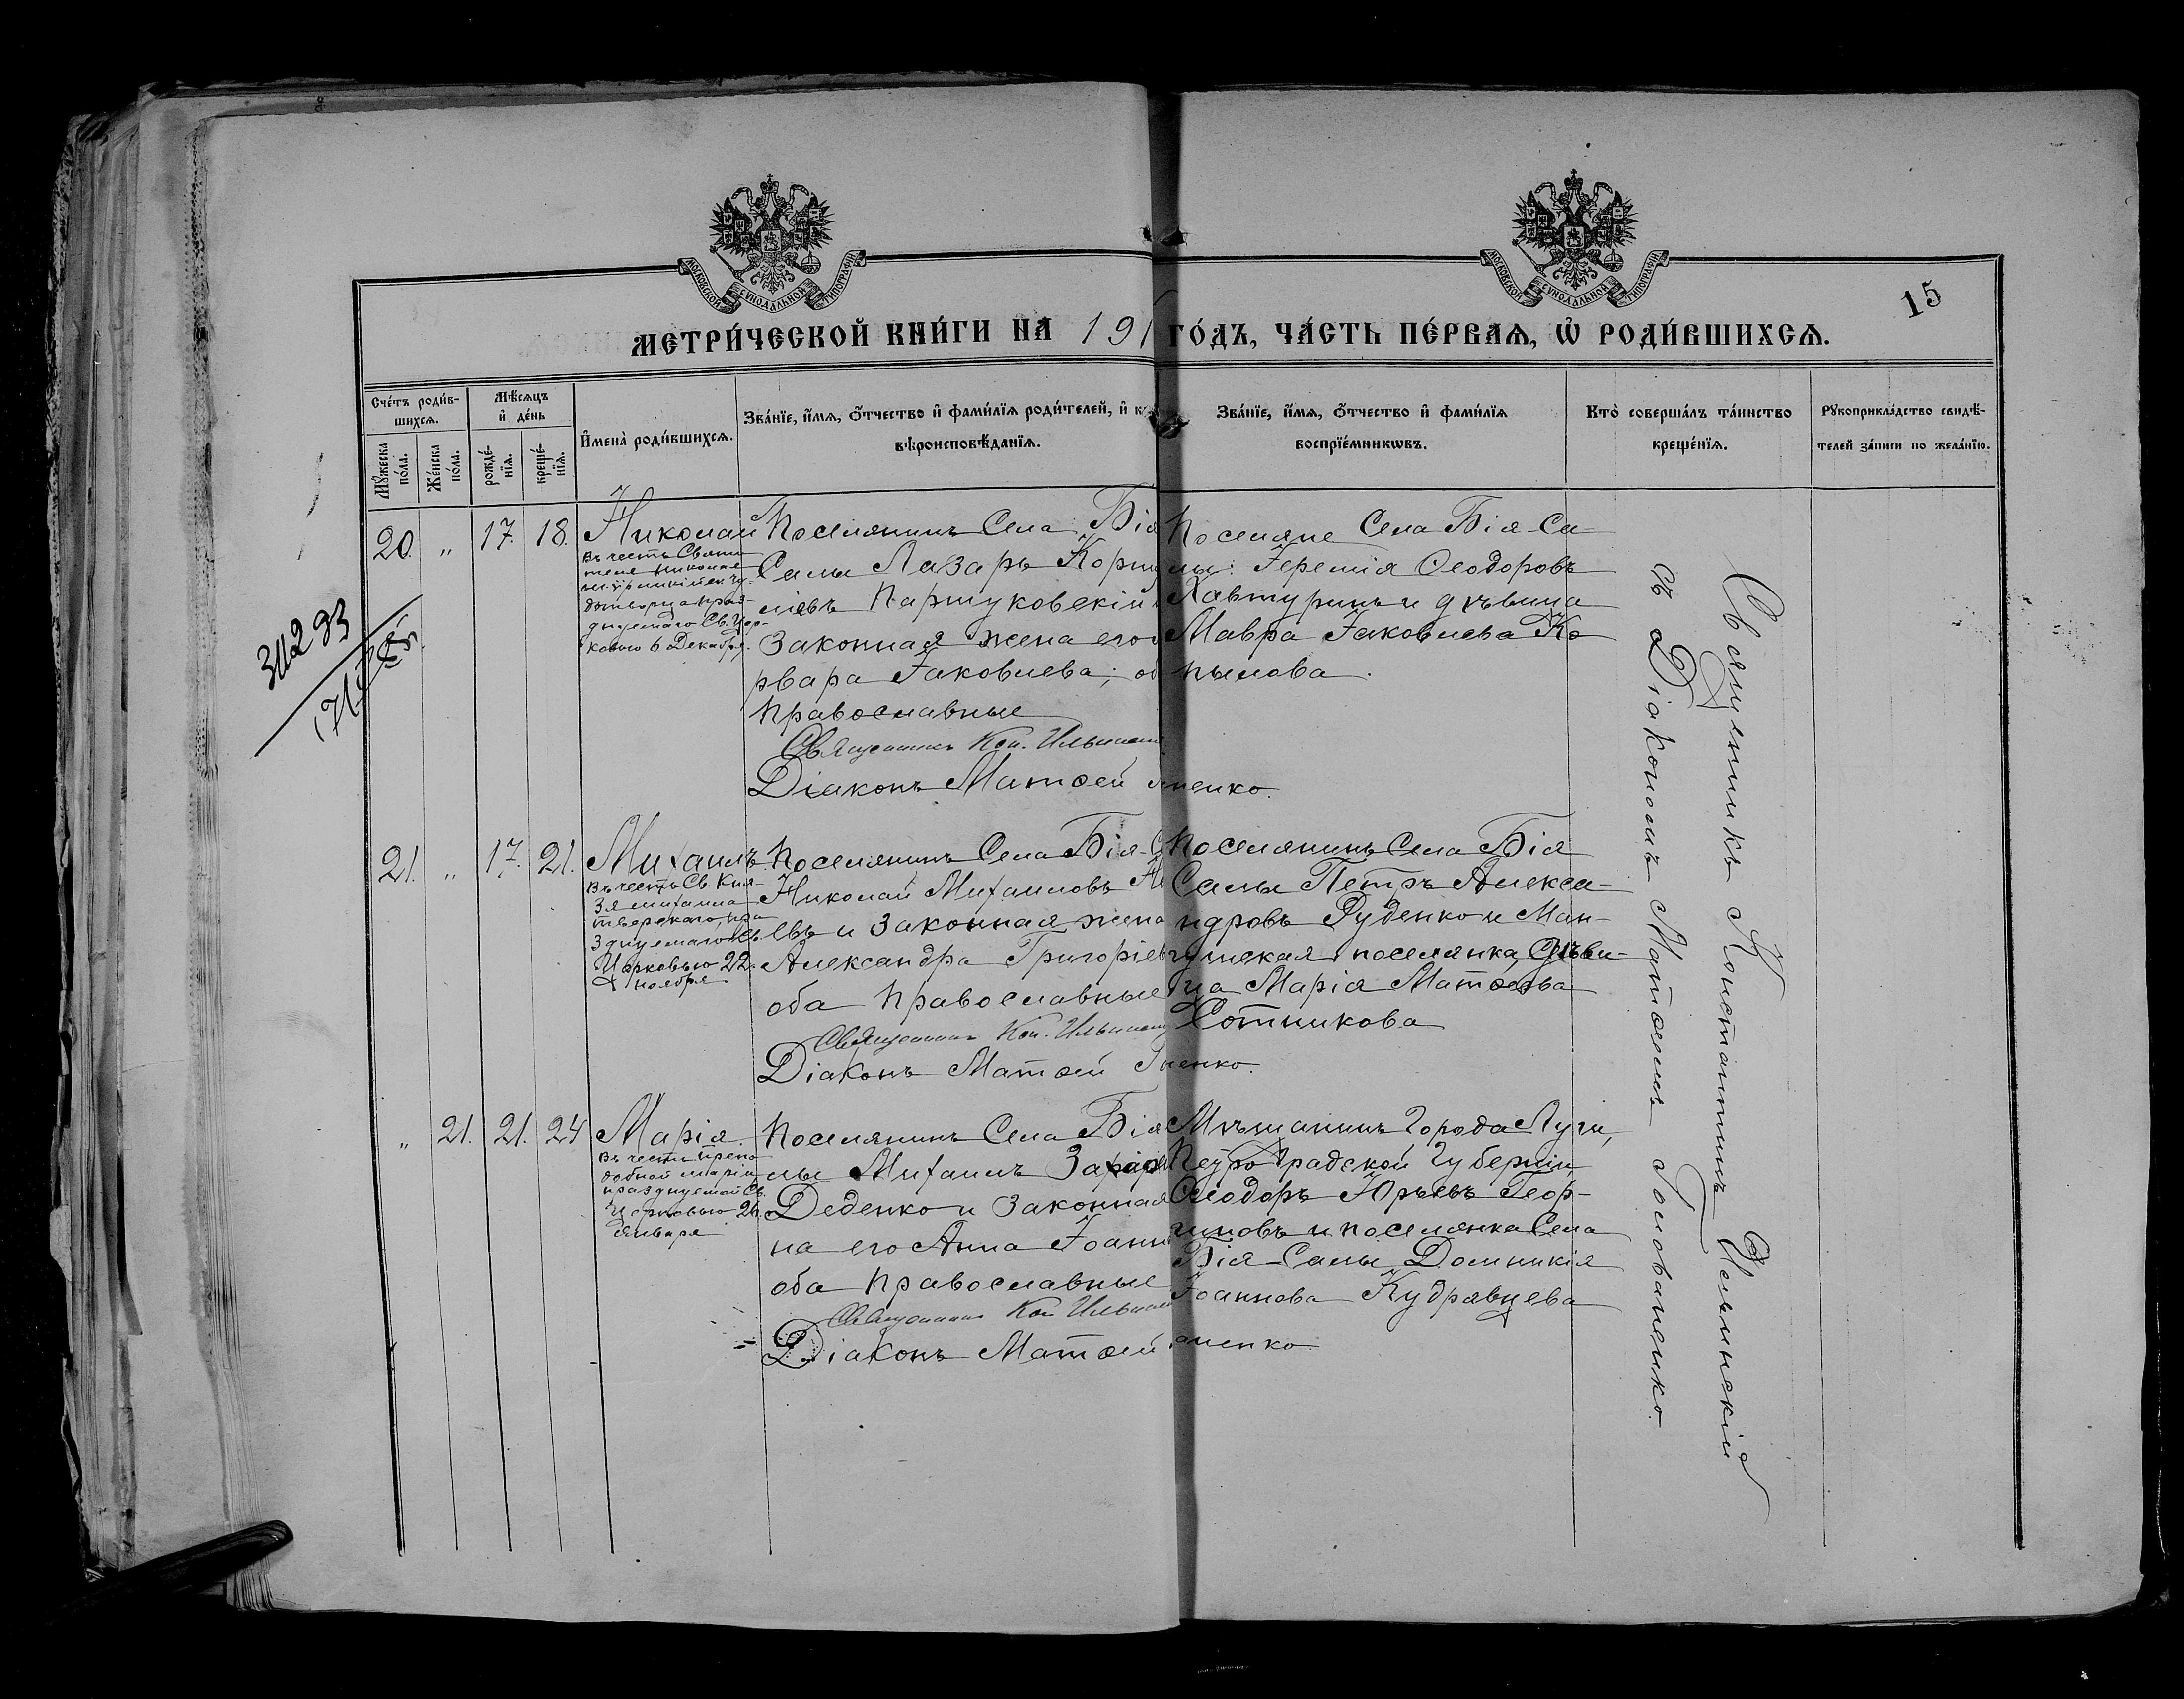 МОСКОВСКОЙ СѴНОДАЛЬНОЙ ТИПОГРАФІИ
МОСКОВСКОЙ СѴНОДАЛЬНОЙ ТИПОГРАФІИ
15
МЕТРИ́ЧЕСКОЙ КНИ́ГИ НА 191 ГО́ДЪ, ЧА́СТЬ ПЕ́РВАѦ, Ѡ҆ РОДИ́ВШИХСѦ.
Сче́тъ роди́в-
шихсѧ.
Мꙋ́жеска по́ла.
Же́нска по́ла.
Мѣ́сѧцъ
и҆ де́нь
рожде́-
нїѧ.
креще́-
нїѧ.
И҆мена̀ роди́вшихсѧ.
Зва́нїе, и҆́мѧ, ѻ҆́тчество и҆ фами́лїѧ роди́телей, и҆ к
вѣроисповѣ́данїѧ.
Зва́нїе, и҆́мѧ, ѻ҆́тчество и҆ фами́лїѧ
воспрїе́мникѡвъ.
Кто̀ соверша́лъ та́инство
креще́нїѧ.
Рꙋкоприкла́дство свидѣ́-
телей за́писи по жела́нїю.
31293
20. " 17. 18. Николай
Въ честь Святи-
теля Николая
Мѵрликійск. Чу-
дотворца праз-
днуемаго Св. Цер-
ковью 6 Декабря.
Поселянинъ Села Бія
Салы Лазарь Корни
ліевъ Паршуковскій
Законная жена его
рвара Іаковлева; об
православные
Священникъ Кон. Ильинскі
Діаконъ Матѳей аненко.
Поселяне Села Бія-Са-
лы: Іеремія Ѳеодоровъ
Хавтуринъ и дѣвица
Мавра Іаковлева Ко
пылова.
21. " 17. 21. Михаилъ.
Въ честь Св. Кня-
зя Михаила
Тверскаго, пра
зднуемаго Св.
Церковью 22
ноября
Поселянинъ Села Бія-С
Николай Михаиловъ
евъ и законная жена
Александра Григоріев
оба православные
Священникъ Кон. Ильинскі
Діаконъ Матѳей ненко.
Поселянинъ Села Бія
Салы Петръ Алекса-
ндровъ Руденко и Ман-
гушская поселянка, дѣви-
ца Марія Матѳеева
Сотникова
" 21. 21. 24 Марія.
Въ честь препо
добной Маріи
празднуемой Св.
Церковью 26
Января
Поселянинъ Села Бія
лы Михаилъ Захарі
Деденко и законная
на его Анна Іоанн
оба православные
Священникъ Кон Ильинскі
Діаконъ Матѳей аненко.
Мѣщанинъ города Луги,
Петроградской губерніи
Ѳеодоръ Юрьевъ Геор-
гиновъ и поселянка Села
Бія-Салы Домникія
Іоаннова Кудрявцева
Священникъ Константинъ Ильинскій
съ Діакономъ Матѳеемъ Голованенко.